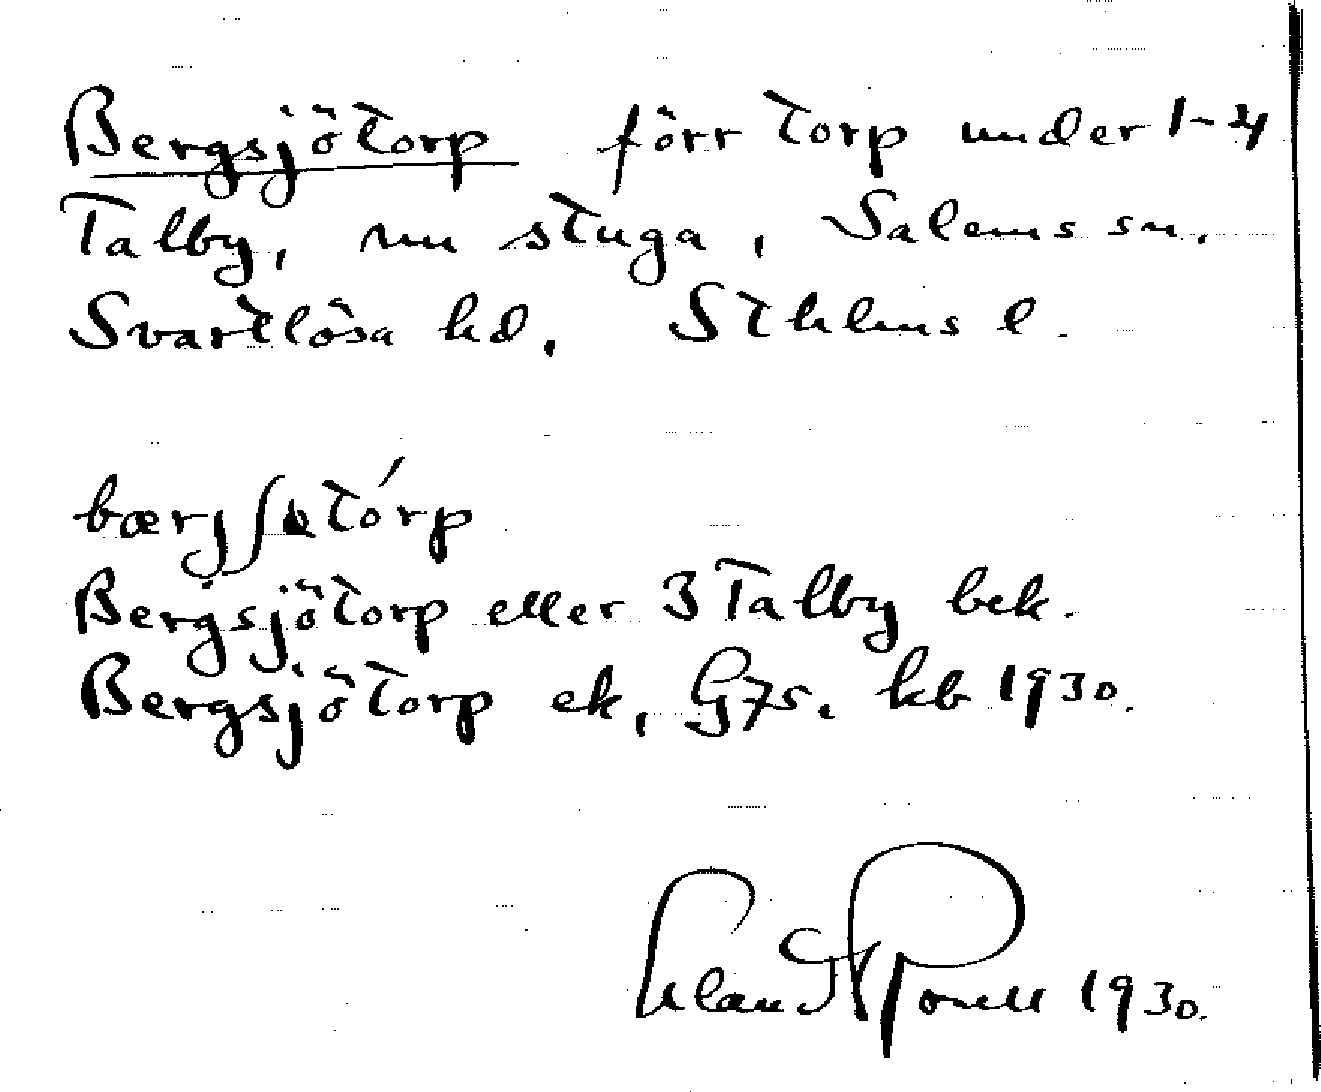 Bergsjötorp förr torp under 1-4
Talby, nu stuga, Salems sn.
Svartlösa hd, Sthlms l.
bærjʃatórp
Bergsjötorp eller 3 Talby bek.
Bergsjötorp ek, Gzs. kb 1930.
1930.